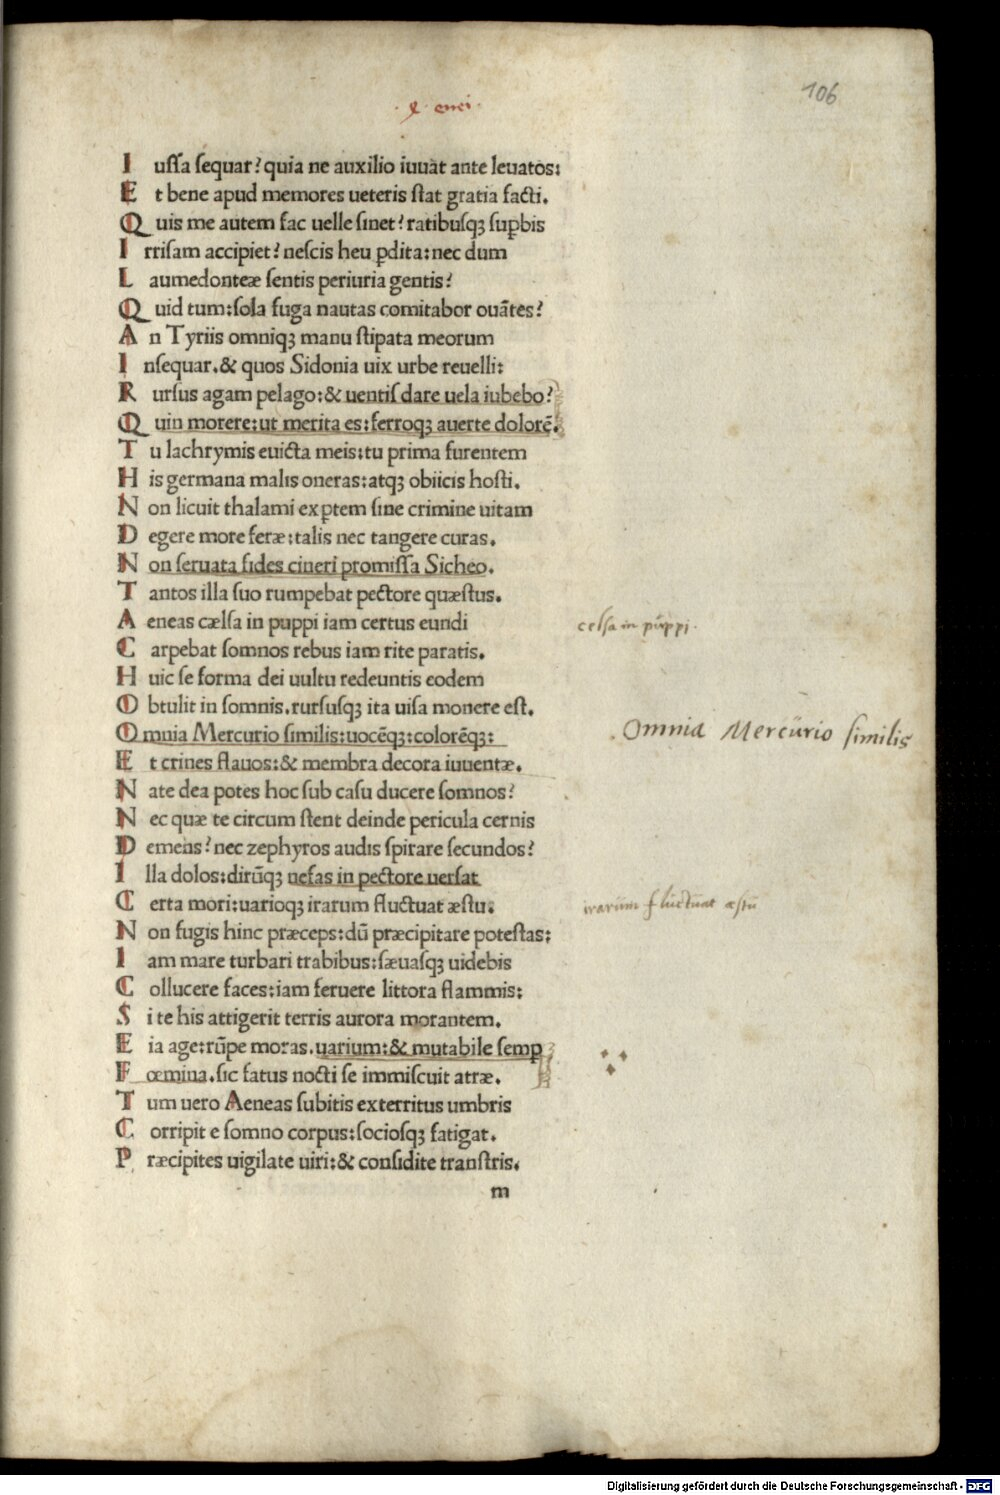 106
I ussa sequar? quia ne auxilio iuuāt ante leuatos:
E t bene apud memores ueteris stat gratia facti.
Q uis me autem fac uelle sinet? ratibusqꝫ suꝑbis
I rrisam accipiet? nescis heu ꝑdita: nec dum
L aumedonteæ sentis periuria gentis?
Q uid tum: sola fuga nautas comitabor ouātes?
A n Tyriis omniqꝫ manu stipata meorum
I nsequar. & quos Sidonia uix urbe reuelli:
R ursus agam pelago: & uentis dare uela iubebo?
Q uin morere: ut merita es: ferroqꝫ auerte dolorē.
T u lachrymis euicta meis: tu prima furentem
H is germana malis oneras: atqꝫ obiicis hosti.
N on licuit thalami exꝑtem sine crimine uitam
D egere more feræ: talis nec tangere curas.
N on seruata fides cineri promissa Sicheo.
T antos illa suo rumpebat pectore quæstus.
A eneas cælsa in puppi iam certus eundi
celsa in puppi.
C arpebat somnos rebus iam rite paratis.
H uic se forma dei uultu redeuntis eodem
O btulit in somnis. rursusqꝫ ita uisa monere est.
O mnia Mercurio similis: uocēqꝫ: colorēqꝫ:
Omnia Mercurio similis
E t crines flauos: & membra decora iuuentæ.
N ate dea potes hoc sub casu ducere somnos?
N ec quæ te circum stent deinde pericula cernis
D emens? nec zephyros audis spirare secundos?
I lla dolos: dirūqꝫ nefas in pectore uersat
C erta mori: uarioqꝫ irarum fluctuat æstu.
irarum fluctuat æstu
N on fugis hinc præceps: dū præcipitare potestas:
I am mare turbari trabibus: sæuasqꝫ uidebis
C ollucere faces: iam feruere littora flammis:
S i te his attigerit terris aurora morantem.
E ia age: rūpe moras. uarium: & mutabile semꝑ
F œmina. sic fatus nocti se immiscuit atræ.
T um uero Aeneas subitis exterritus umbris
C orripit e somno corpus: sociosqꝫ fatigat.
P ræcipites uigilate uiri: & considite transtris.
m
Digitalisierung gefördert durch die Deutsche Forschungsgemeinschaft - DFG